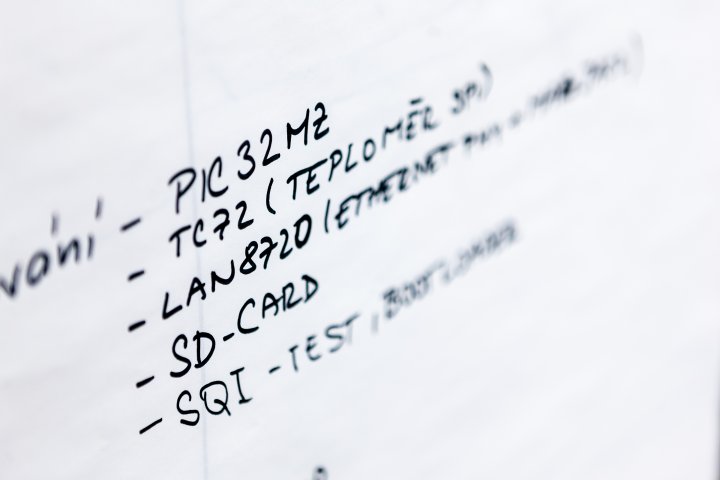 vání - PIC32MZ
- TC72 (TEPLOMĚR SPI)
- LAN8720 (ETHERNET PHY
- SD-CARD
- SQI - TEST, BOOTLOADER